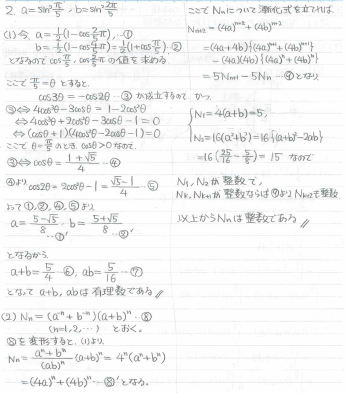 2. a=sin²π/5 , b=sin²2π/5
(1) 今, a=1/2(1-cos2/5π), …①
b=1/2(1-cos4/5π)=1/2(1+cosπ/5)…②
となるので cosπ/5, cos2/5π の値を求める.
ここで π/5=θ とすると,
cos3θ=-cos2θ …③ が成立するので
③⇔4cos³θ-3cosθ=1-2cos²θ
⇔4cos³θ+2cos²θ-3cosθ-1=0
⇔(cosθ+1)(4cos²θ-2cosθ-1)=0
ここで θ=π/5 のとき, cosθ>0 なので,
③⇔cosθ=(1+√5)/4 …④
④より cos2θ=2cos²θ-1=(√5-1)/4 …⑤
よって ①,②,④,⑤より
a=(5-√5)/8 …①', b=(5+√5)/8 …②'
となるから
a+b=5/4 …⑥, ab=5/16 …⑦
となって a+b, ab は有理数である//
(2) Nn=(a⁻ⁿ+b⁻ⁿ)(a+b)ⁿ …⑧
(n=1,2,…) とおく。
⑧を変形すると, (1)より,
Nn=(aⁿ+bⁿ)/(ab)ⁿ (a+b)ⁿ=4ⁿ(aⁿ+bⁿ)
=(4a)ⁿ+(4b)ⁿ …⑧' となる。
ここで Nnについて漸化式を立てれば,
Nn+2=(4a)ⁿ⁺²+(4b)ⁿ⁺²
=(4a+4b){(4a)ⁿ⁺¹+(4b)ⁿ⁺¹}
-(4a)(4b){(4a)ⁿ+(4b)ⁿ}
=5Nn+1-5Nn …⑨となり,
かつ,
N1=4(a+b)=5,
N2=16(a²+b²)=16{(a+b)²-2ab}
=16(25/16-5/8)=15 なので
N1,N2が整数で,
Nk,Nk+1が整数ならば⑨よりNk+2も整数
以上からNnは整数である//